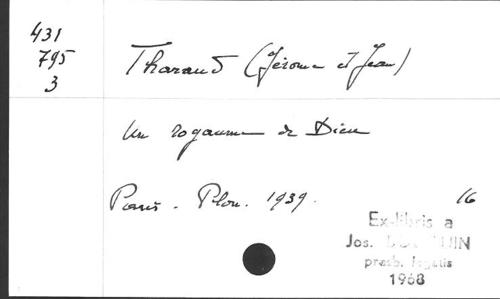 431
795
3
Tharaud (Jérome et Jean)
Un royaume de Dieu
Paris. Plon. 1939.
16
Ex-libris a
Jos.
presb. legatis
1968